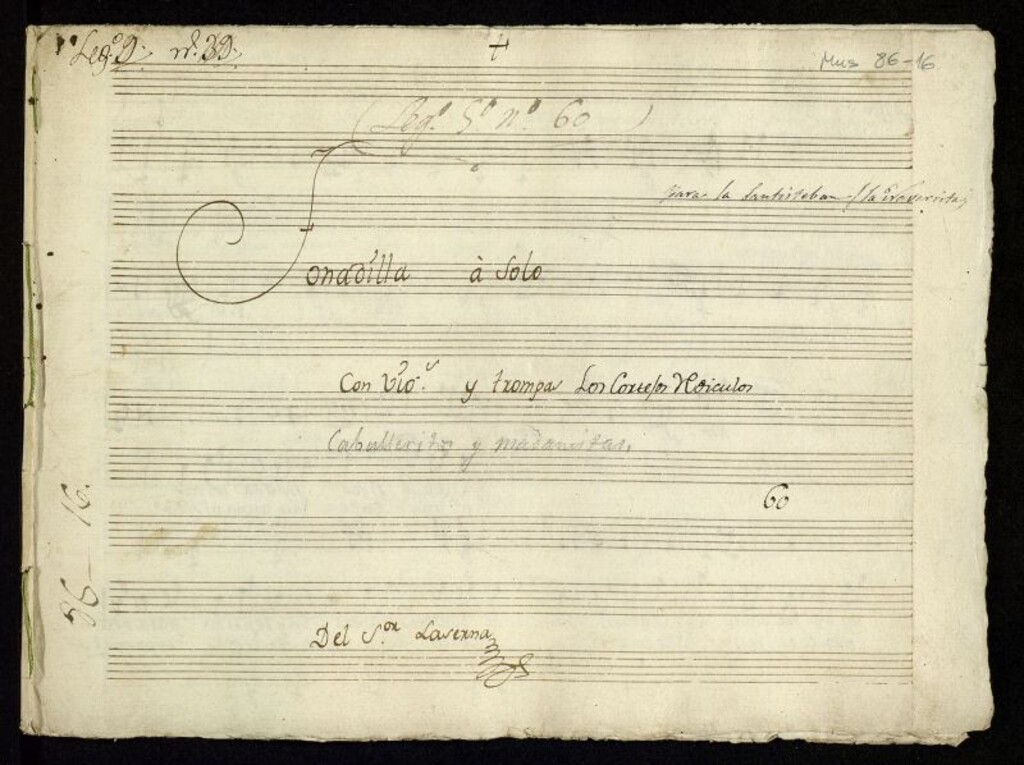 Leg.º 9. n.º 39.
+
Mus 86-16
(Leg.º 5.º n.º 60)
para la Santisteban
Tonadilla à Solo
Con Vio.s y trompas Los Cortejos Rediculos
Caballeritos y madamitas,
60
86-16.
Del S.or Laserna